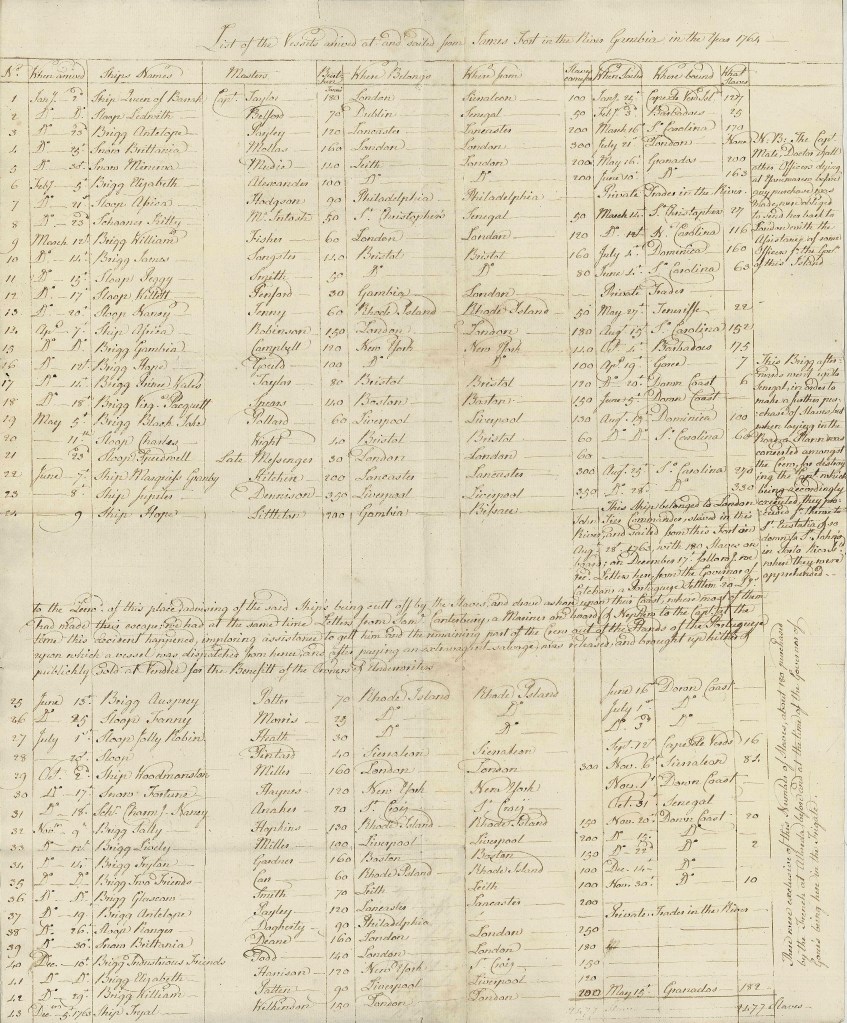 List of the Vessels arived at and sailed from James Fort in the River Gambia in the Year 1764
No. When arrived Ships Names Masters Burthen Tuns When Belongs When from Slaves When Sailed Where bound What Slaves
1 Jany. 2d Ship Queen of Barrah Capt. Taylor 180 London Sienaleon 100 Jany. 24 Cape de Verd 127
2 Do Do Sloop Ledwith Belford 70 Dublin Senegal 50 Feby. 3d Barbadoes 25
3 Do 23 Brigg Antelope Payley 120 Lancaster Lancaster 200 March 16 So. Carolina 170
4 Do 25 Snow Brittania 160 London London 300 July 21 London None
5 Do Snow Minerva 140 Leith Do 200 May 16 Granados 200
6 Feby. 5 Brigg Elizabeth Alexander 100 Do Do 200 June 10 Do 163
7 Do 21 Sloop Africa Hodgson 90 Philadelphia Philadelphia Private Trader in the River
8 Do 23 Schooner Kitty 50 St. Christophers Senegal 50 March 14 St. Christophers 27
9 March 12 Brigg William Fisher 60 London London 120 Do So. Carolina 116
10 Do 14 Brigg James Sangster 140 Bristol Bristol 160 July 4 Dominica 160
11 Do 15 Sloop Peggy Smith 50 Do Do 80 June 4 So. Carolina 63
12 Do 17 Sloop Willett Penford 30 Gambia London Private Trader
13 Do 20 Sloop Nancy Jenny 60 Rhode Island Rhode Island 50 May 27 Teneriffe 22
14 Apl. 7 Ship Africa Robinson 150 London London 180 Augt. 15 So. Carolina 152
15 Do Do Brigg Gambia Campbell 120 New York New York 140 Octr. 4 Barbadoes 175
16 Do 12 Brigg Hope Gould 100 Do Do 100 Apl. 19 Goree 7
17 Do 14 Brigg Prince Wales Taylor 80 Bristol Bristol 120 Do 20 Down Coast 6
18 Do 18 Brigg Virga. Pacquett Spears 140 Boston Boston 150 June 5 Down Coast
19 May 5 Brigg Black Jake Pollard 60 Liverpool Liverpool 130 Augt. 13 Dominica 100
20 11 Sloop Charles Wright 40 Bristol Bristol 60 Do Do So. Carolina 60
21 23 Sloop Speedwell Late Messenger 30 London London 60
22 June 7 Ship Marquiss Granby Kitchen 200 Lancaster Lancaster 300 Augt. 25 So. Carolina 270
23 8 Ship Jupiter Dennison 350 Liverpool Liverpool 350 Do 28 Do 330
24 9 Ship Hope Littleton 200 Gambia Bissaee
N.B. The Capt.
Mate, Doctor & all
other Officers dying
at Yanimarew before
any purchase was
made, were obliged
to send her back to
London with the
Assistance of some
Officers
of this Island
This Brigg after-
wards went up to
Senegal, in order to
make a further pur-
chase of Slaves, but
when laying in the
Road a Mann was
convicted amongst
the Crew, for destroy-
ing the Capt. which
being accordingly
executed they pro-
ceeded
St. Eustatia & so
down to
in Porto Rico
when they were
apprehended
This Ship belonged to London
John Commander, slaved in this
River, and sailed from this Fort on
Augt. 28 1763, with 180 Slaves on
board; on December 17 followg. I re-
ced. Letters here from the Governor of
a Portuguese Settlemt.
to the of this place, advising of the said Ship's being cutt off by the Slaves, and drove ashore upon this Coast, where most of them
had made their escape, we had at the same time Letters from Saml. Canterbury a Mariner on board & Nephew to the Capt. at the
time this accident happened, imploring assistance to gett him and the remaining part of the Crew out of the Hands of the Portuguese
upon which a vessel was dispatched from hence, and after paying an extravagant salvage, was released, and brought up hither &
publickly Sold at Vendue for the Benefitt of the Owners & Underwriters
25 June 13 Brigg Potter 70 Rhode Island Rhode Island June 16 Down Coast
26 Do 25 Sloop Fanny Morris 25 Do Do July 1 Do
27 July 1 Sloop Jolly Robin Heath 30 Do Do Do 3d Do
28 20 Sloop Pintard 40 Sienaleon Sienaleon Sept. 12 Cape de Verds 16
29 Oct. 2d Ship Woodmanston Miller 160 London London 300 Nov. 6 Sienalean 84
30 Do 17 Snow Fortune Haynes 120 New York New York Nov. 1 Down Coast
31 Do 18 Schr. Charmg. Nancy 20 St. Craij St. Craij Oct. 31 Senegal
32 Novr. 9 Brigg Sally Hopkins 130 Rhode Island Rhode Island 150 Nov. 20 Down Coast 20
33 Do 12 Brigg Lively Miller 100 Liverpool Liverpool 200 Do 15 Do
34 Do 14 Brigg Gardner 160 Boston Boston 150 Do 22 Do 2
35 Do Do Brigg Two Friends Carr 60 Rhode Island Rhode Island 100 Dec. 14 Do
36 Do Do Brigg Smith 70 Leith Leith 100 Nov. 30 Do 10
37 Do 19 Brigg Antelope Payley 120 Lancaster Lancaster 200
38 Do 26 Sloop Ranger Dogherty 90 Philadelphia Private Trader in the River
39 Do 30 Snow Brittania Deane 160 London London 250
40 Dec. 10 Brigg Industrious Friends Todd 140 London London 180
41 Do Do Brigg Elizabeth Harrison 120 New York St. Craij 150
42 Do 29 Brigg William Patten 90 Liverpool Liverpool 120
43 1763 Ship Wilkinson 150 London London 200 May 15 Granados 182
2477 Slaves
These were exclusive of this Number of Slaves, about 150 purchased
by the French at Albreda before and at the time of the Governor of
Goree's being here in the Frigate.